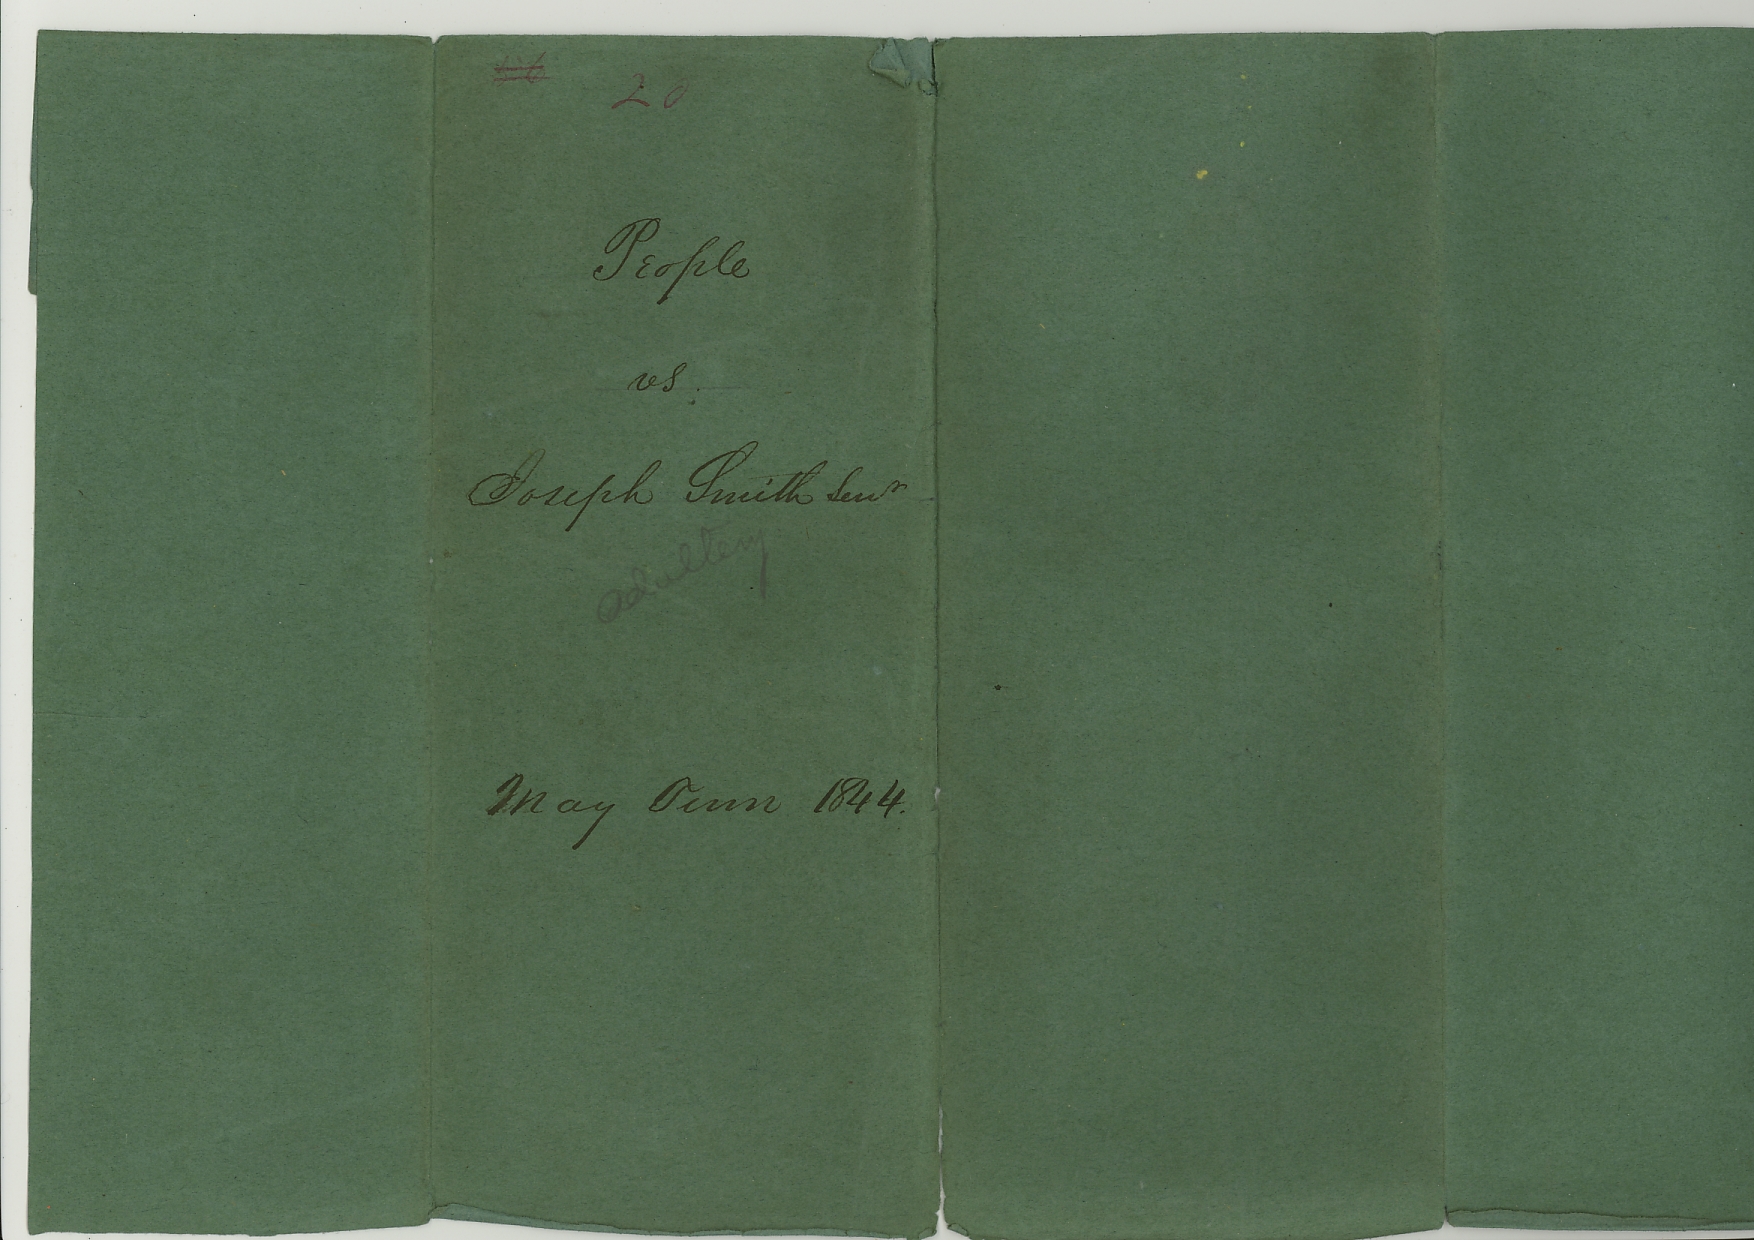 20
People
vs.
Joseph Smith Senr
adultery
May Term 1844.